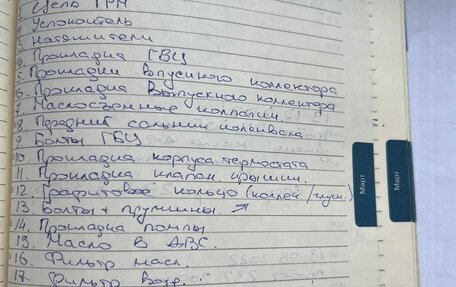 Цепь ГРМ
Успокоитель
3. Натяжители
4. Прокладка ГБЦ
5. Прокладки впускного коллектора
6. Прокладка выпускного коллектора
7. Маслосъемные колпачки
8. Передний сальник коленвала
9. Болты ГБЦ
10. Прокладка корпуса термостата
11. Прокладка клапан. крышки.
12. Графитовое кольцо (коллек./глуш.)
13. Болты + пружины.
14. Прокладка помпы
15. Масло в ДВС.
16. Фильтр масл.
17. Фильтр возд.
Март
Март